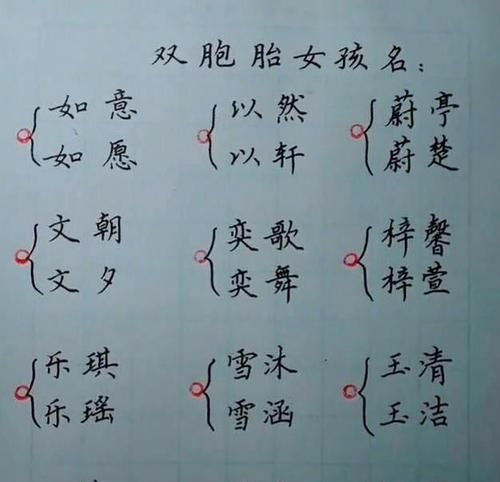 双胞胎女孩名：
如意 以然 蔚亭
如愿 以轩 蔚楚
文朝 奕歌 梓馨
文夕 奕舞 梓萱
乐琪 雪沐 玉清
乐瑶 雪涵 玉洁